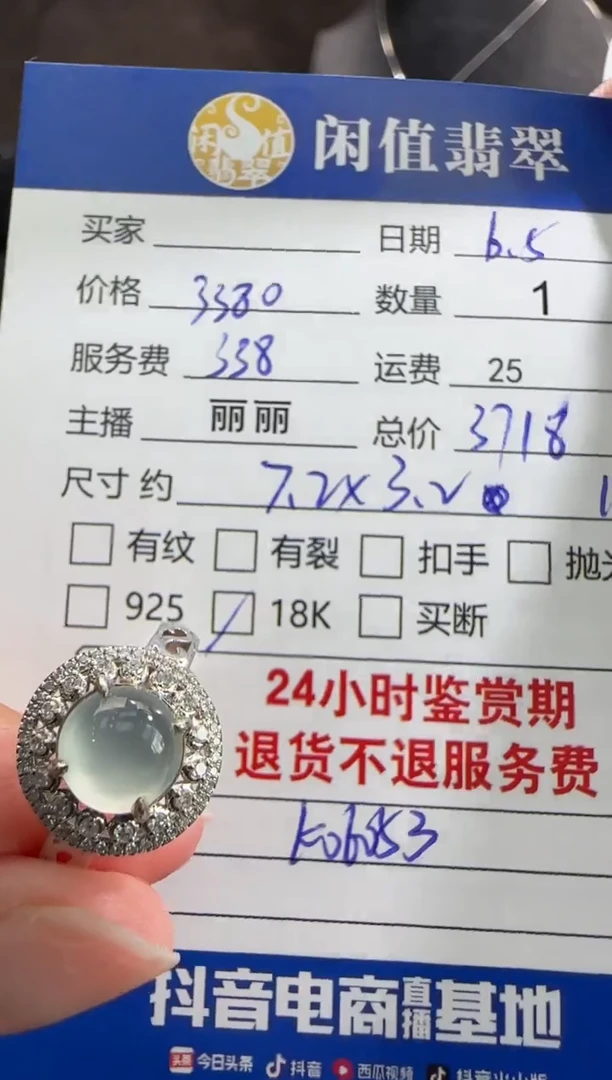 闲值翡翠 闲值翡翠
买家 日期 6.5
价格 3380 数量 1
服务费 338 运费 25
主播 丽丽 总价 3718
尺寸 约 7.2x3.2
有纹 有裂 扣手 抛光
925 18K 买断
24小时鉴赏期
退货不退服务费
K06853
抖音电商直播基地
头条 今日头条 抖音 西瓜视频 抖音火山版